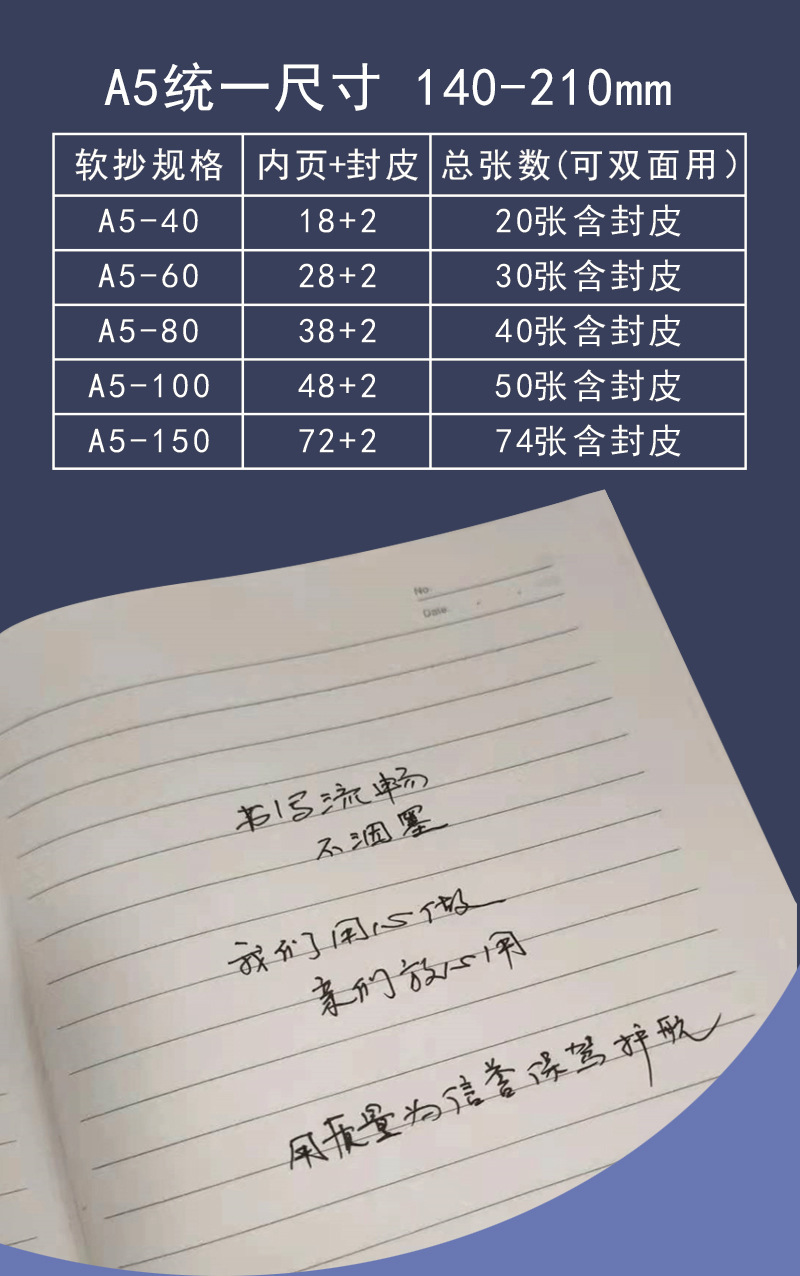 A5统一尺寸 140-210mm
软抄规格 内页+封皮 总张数(可双面用)
A5-40 18+2 20张含封皮
A5-60 28+2 30张含封皮
A5-80 38+2 40张含封皮
A5-100 48+2 50张含封皮
A5-150 72+2 74张含封皮
No.
Date.
书写流畅
不洇墨
我们用心做
亲们放心用
用质量为信誉保驾护航